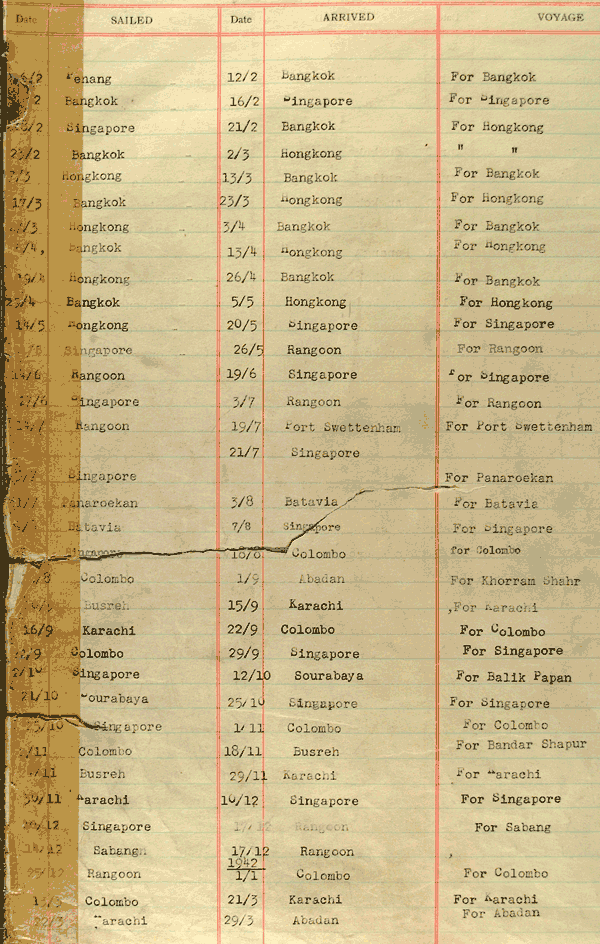 Date SAILED Date ARRIVED VOYAGE
Penang 12/2 Bangkok For Bangkok
Bangkok 16/2 Singapore For Singapore
Singapore 21/2 Bangkok For Hongkong
23/2 Bangkok 2/3 Hongkong " "
Hongkong 13/3 Bangkok For Bangkok
17/3 Bangkok 23/3 Hongkong For Hongkong
Hongkong 3/4 Bangkok For Bangkok
Bangkok 13/4 Hongkong For Hongkong
19/4 Hongkong 26/4 Bangkok For Bangkok
Bangkok 5/5 Hongkong For Hongkong
14/5 Hongkong 20/5 Singapore For Singapore
Singapore 26/5 Rangoon For Rangoon
14/6 Rangoon 19/6 Singapore For Singapore
27/6 Singapore 3/7 Rangoon For Rangoon
Rangoon 19/7 Port Swettenham For Port Swettenham
21/7 Singapore
Singapore For Panaroekan
Panaroekan 3/8 Batavia For Batavia
Batavia 7/8 Singapore For Singapore
Singapore 18/8 Colombo for Colombo
Colombo 1/9 Abadan For Khorram Shahr
Busreh 15/9 Karachi For Karachi
16/9 Karachi 22/9 Colombo For Colombo
Colombo 29/9 Singapore For Singapore
Singapore 12/10 Sourabaya For Balik Papan
21/10 Sourabaya 25/10 Singapore For Singapore
25/10 Singapore 1/11 Colombo For Colombo
Colombo 18/11 Busreh For Bandar Shapur
Busreh 29/11 Karachi For Karachi
30/11 Karachi 10/12 Singapore For Singapore
Singapore 17/12 Rangoon For Sabang
Sabang 17/12 Rangoon
1942
25/12 Rangoon 1/1 Colombo For Colombo
13/3 Colombo 21/3 Karachi For Karachi
Karachi 29/3 Abadan For Abadan